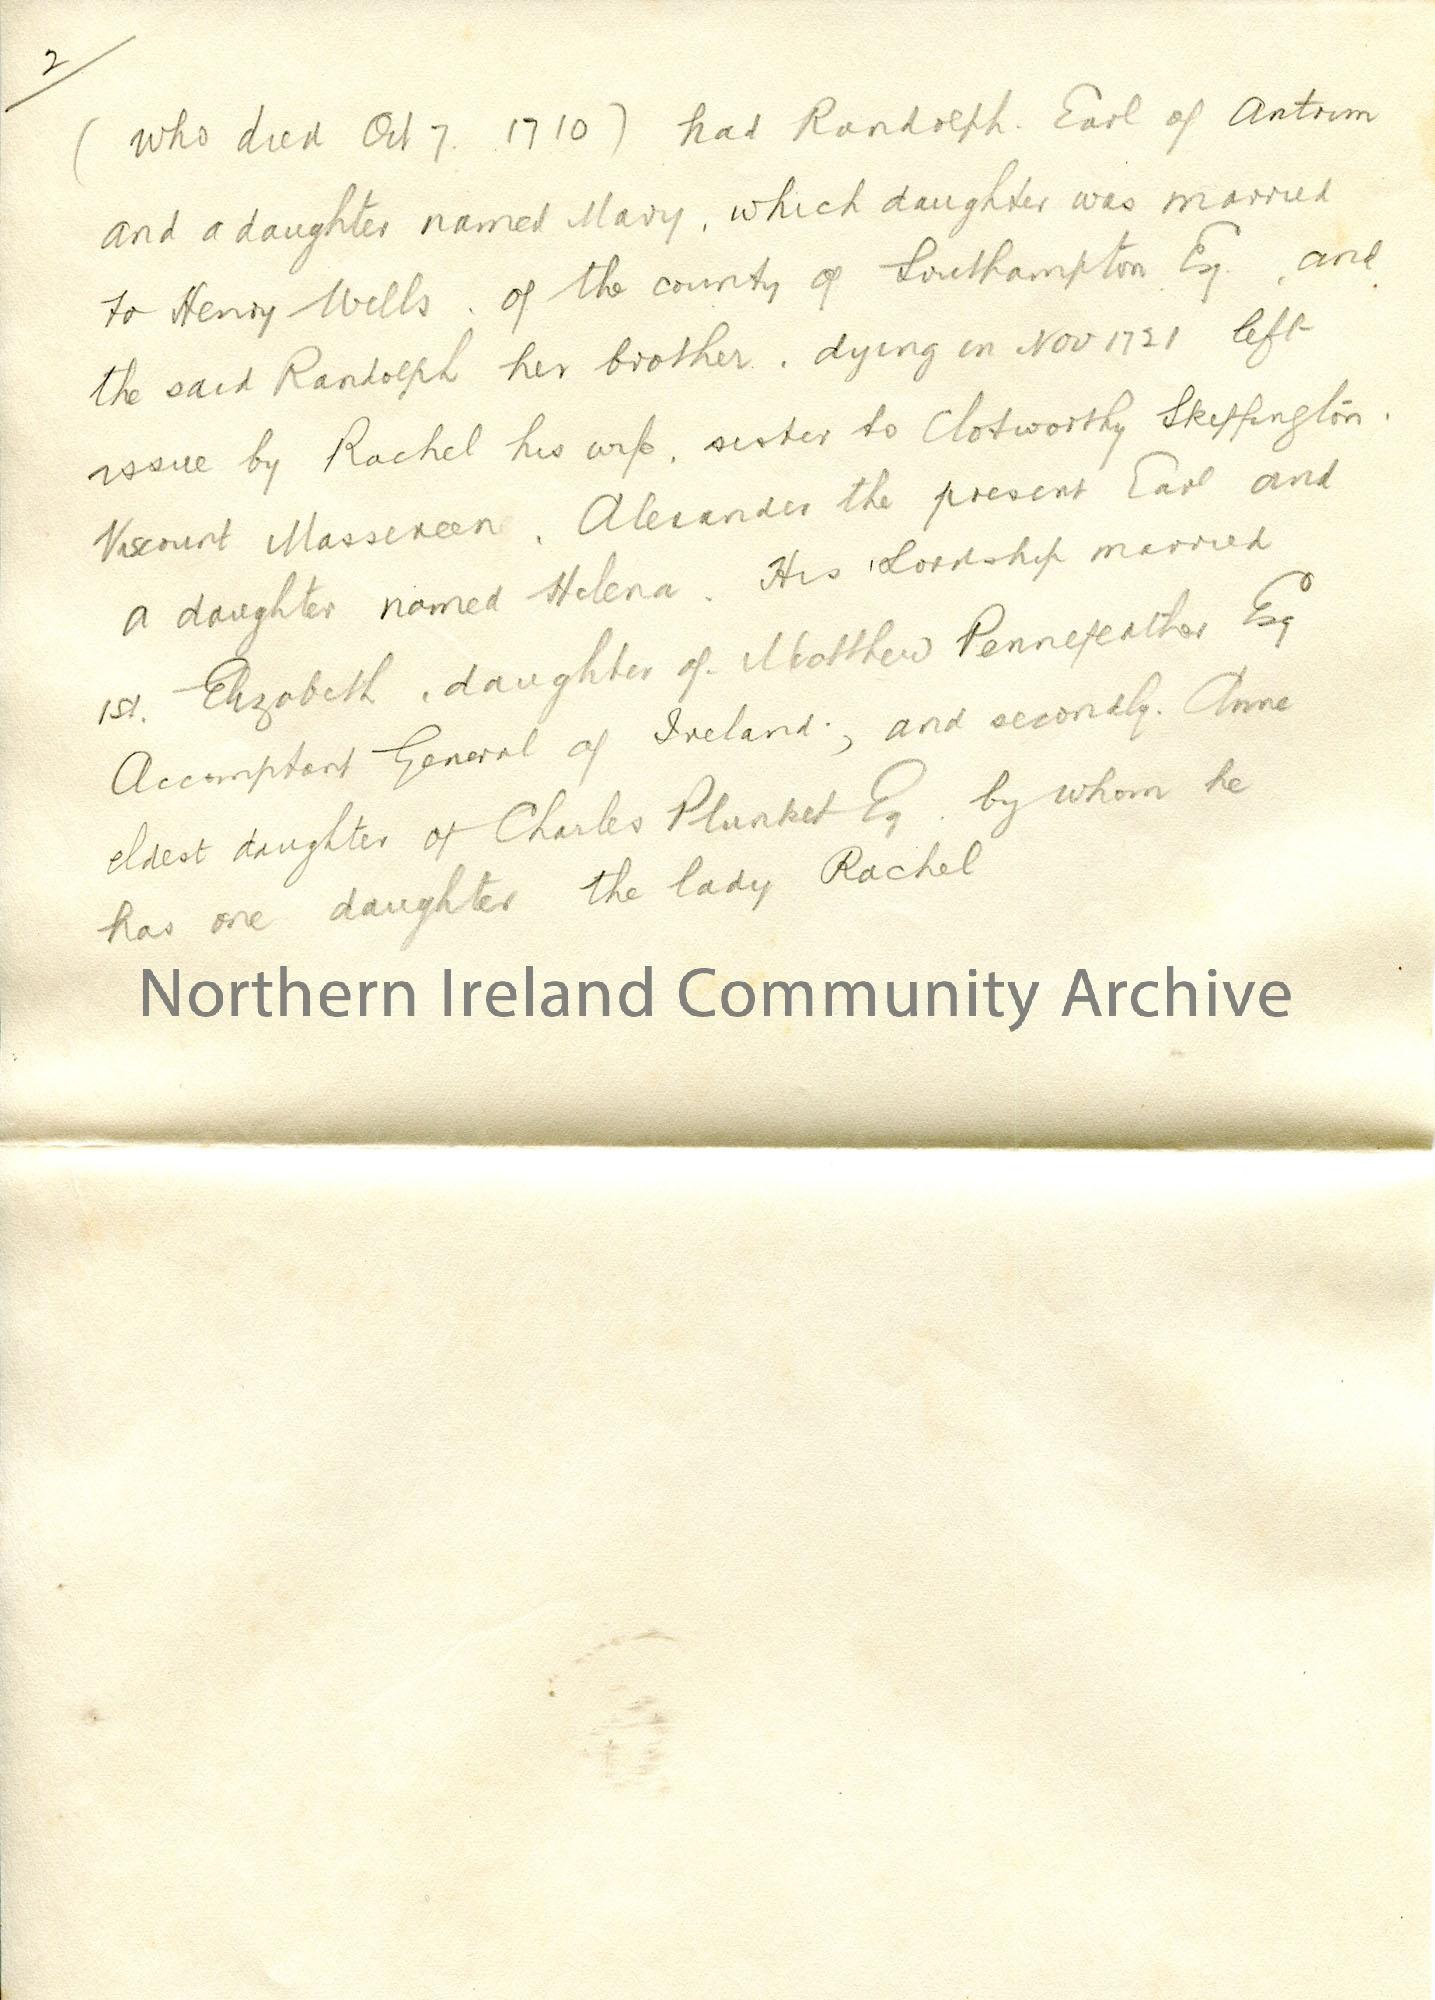 2
(who died Oct 7. 1710) had Randolph. Earl of Antrim
and a daughter named Mary, which daughter was married
to Henry Wells. of the county of Southampton Esq. , and
the said Randolph her brother. dying in Nov 1721 left
issue by Rachel his wife, sister to Clotworthy Skeffington.
Viscount Massereen, Alexander the present Earl and
a daughter named Helena. His Lordship married
1st. Elizabeth, daughter of Matthew Pennefeather Esqr
Accomptant General of Ireland; and secondly. Anne
eldest daughter of Charles Plunket Esq. by whom he
has one daughter the lady Rachel
Northern Ireland Community Archive